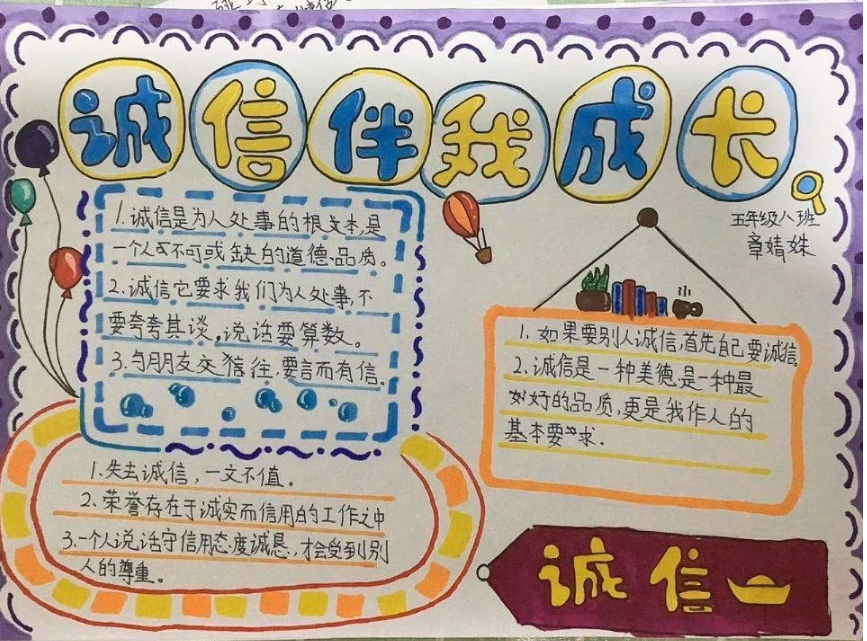 诚信伴我成长
五年级八班
章婧姝
1.诚信是为人处事的根本,是
一个人不可或缺的道德品质。
2.诚信它要求我们为人处事,不
要夸夸其谈,说话要算数。
3.与朋友交往,要言而有信.
1.如果要别人诚信,首先自己要诚信
2.诚信是一种美德,是一种最
好的品质,更是我作人的
基本要求.
1.失去诚信,一文不值.
2.荣誉存在于诚实而信用的工作之中
3.一个人说话守信用态度诚恳,才会受到别
人的尊重.
诚信